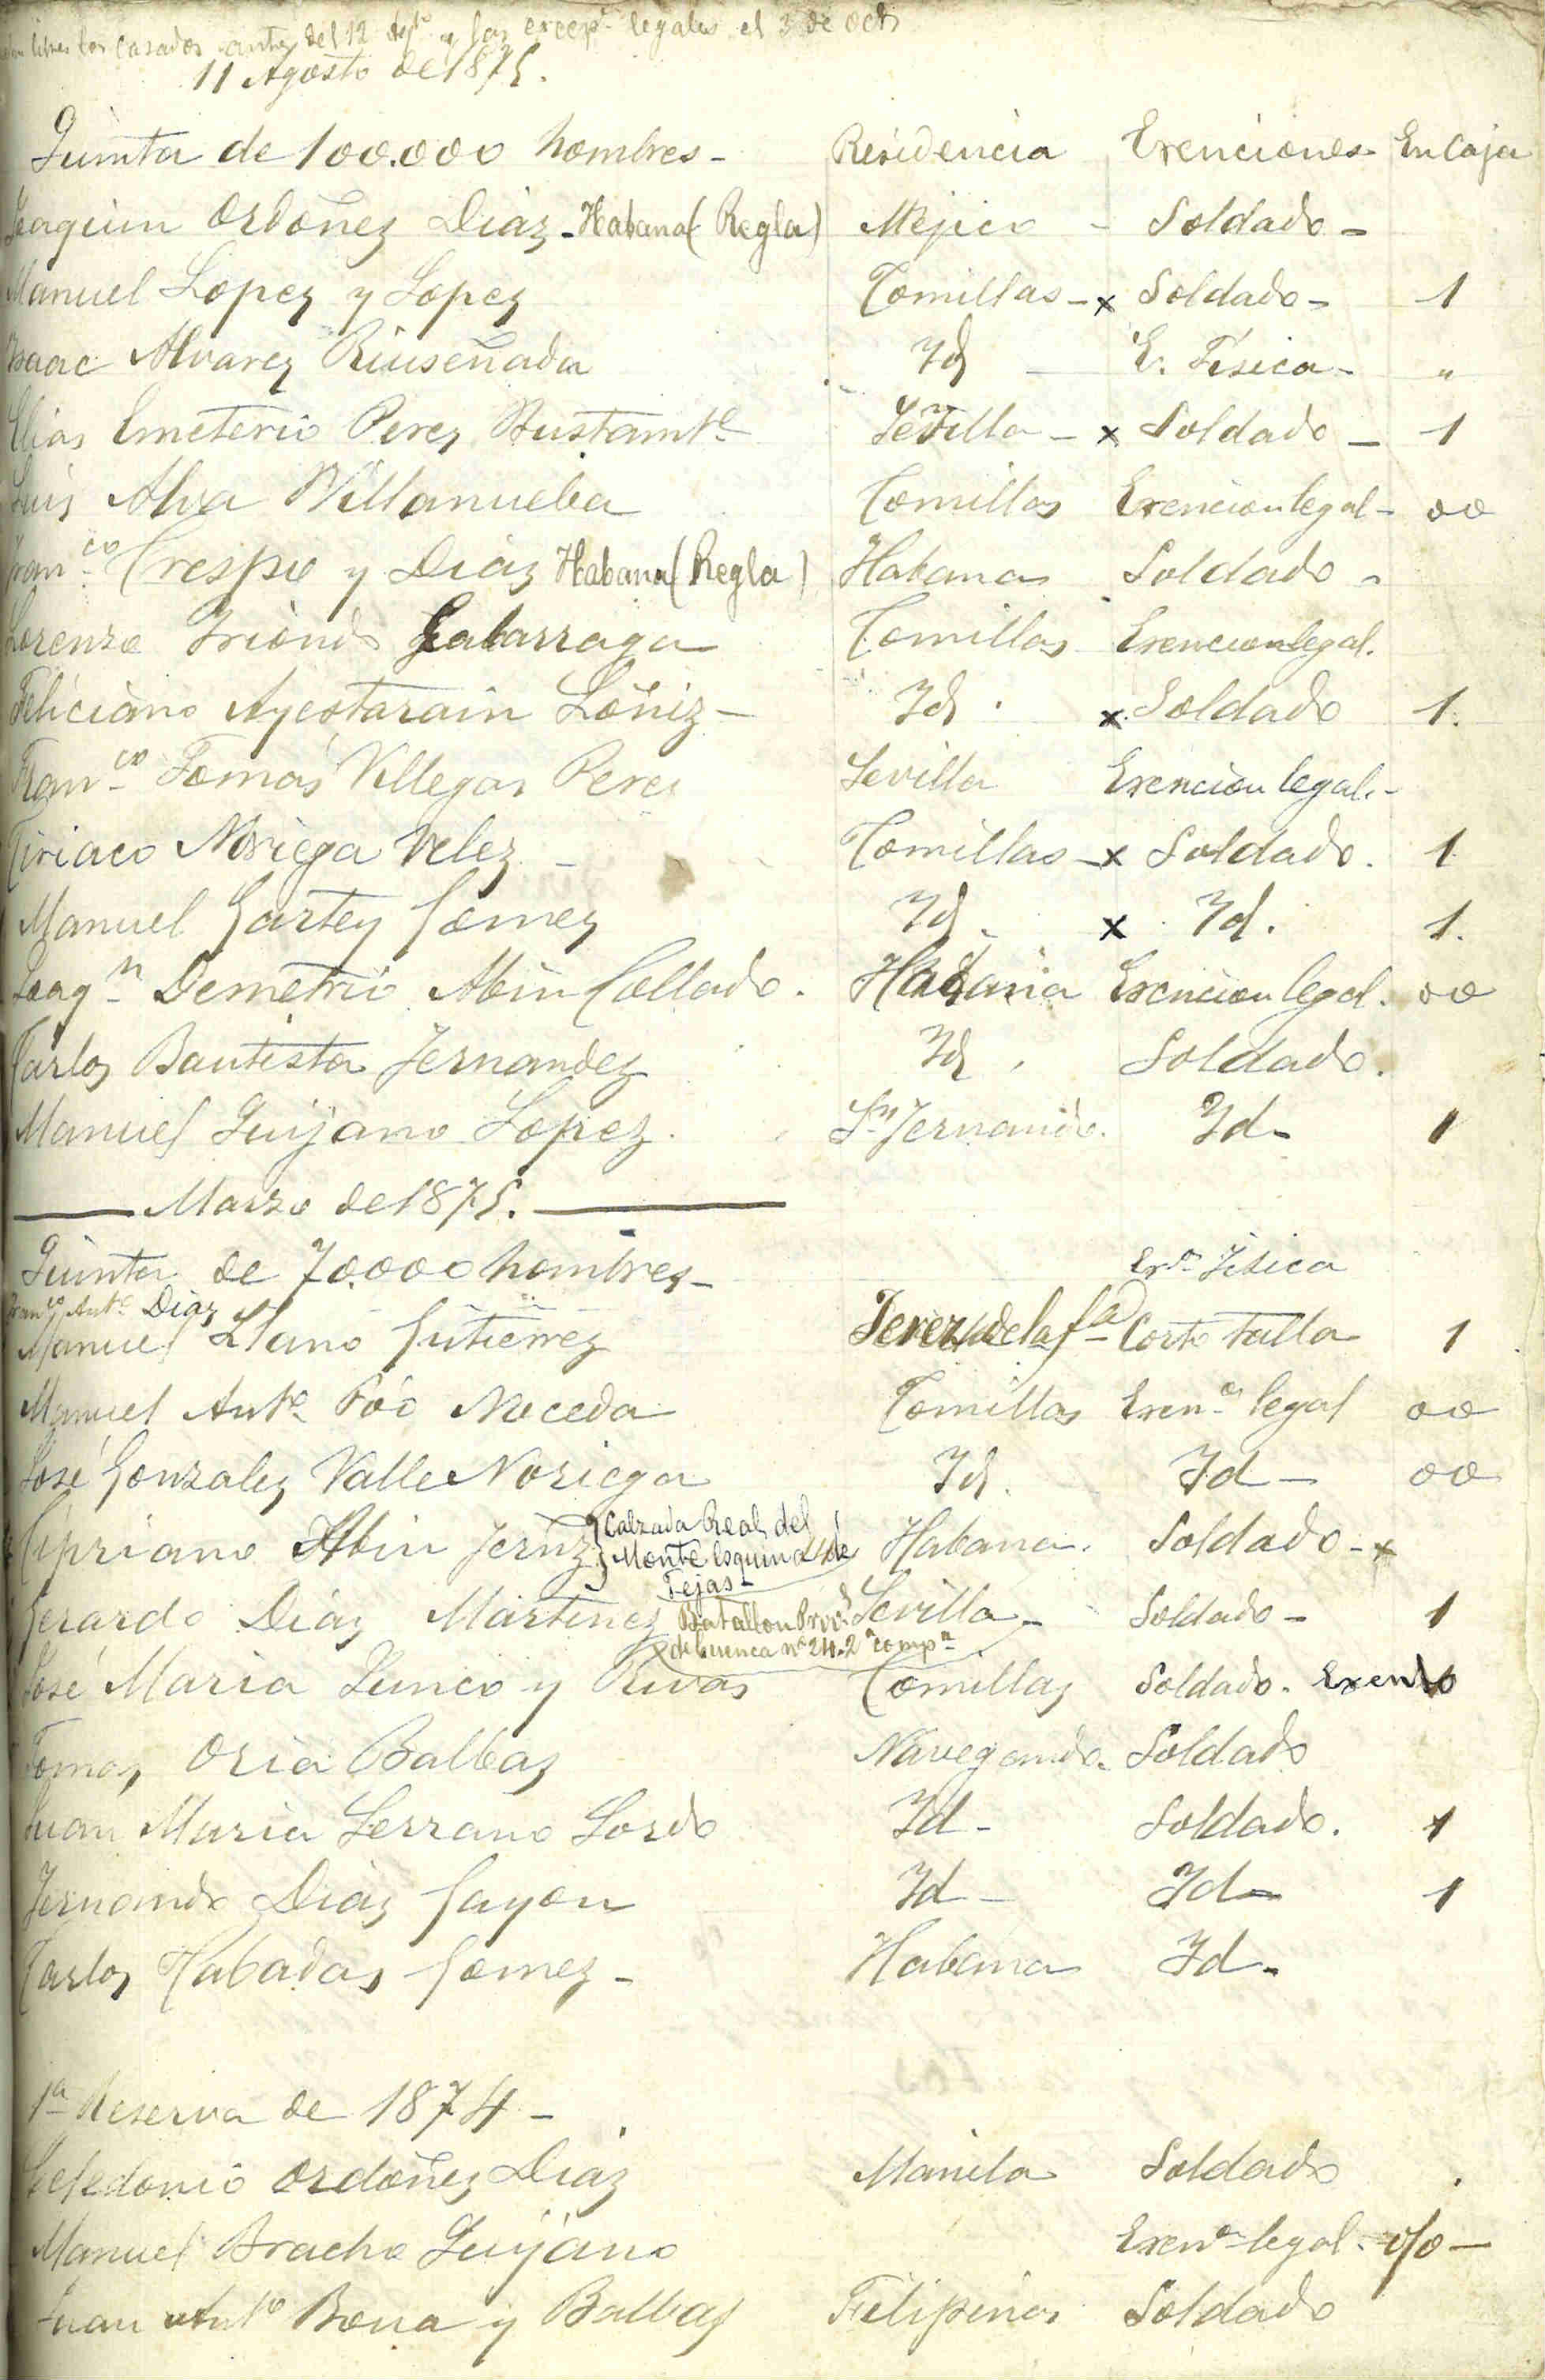 libres los casados antes del 12 Agto y las excepn legales el 3 de Octe
11 Agosto de 1875.
Quinta de 100.000 hombres - Residencia Exenciones En Caja
Joaquin Ordoñez Diaz - Habana (Regla) Mejico - Soldado -
Manuel Lopez y Lopez Comillas - x Soldado - 1
Isaac Alvarez Riuseñada Id - E. Fisica - "
Elias Emeterio Perez Bustamte Sevilla - x Soldado - 1
Luis Alva Villanueba Comillas Exencion legal - oo
Franco Crespo y Diaz Habana (Regla) Habana Soldado -
Lorenzo Iriondo Galarraga Comillas Exencion legal.
Feliciano Aycotarain Loñiz - Id. x Soldado 1.
Franco Tomás Villegas Perez Sevilla Exencion legal. -
Ciriaco Noriega Velez - Comillas - x Soldado. 1
Manuel Gartey Gomez Id. x Id. 1.
Joaqn Demetrio Abin Collado. Habana Exencion legal. oo
Carlos Bautista Fernandez Id. Soldado.
Manuel Quijano Lopez. Sn Fernando. Id - 1
Marzo de 1875.
Quinta de 70.000 hombres -
Exn Fisica
Franco Anto Diaz
Manuel Llano Gutierrez Jerez de la fa Corto talla 1
Manuel Anto Poó Noceda Comillas Exenn legal oo
José Gonzalez Valle Noriega Id. Id - oo
Cipriano Abin Fernz Calzada Real del Monte Esquina de Tejas - Habana. Soldado - x
Gerardo Diaz Martinez Batallon Prov. de Cuenca nº 24. 2ª compa Sevilla - Soldado - 1
José Maria Junco y Rivas Comillas Soldado. Exento
Tomas Oria Balbas Navegando. Soldado
Juan Maria Serrano Sordo Id - Soldado. 1
Fernando Diaz Gayon Id - Id - 1
Carlos Habadas Gomez - Habana Id -
1ª Reserva de 1874 -
Celedonio Ordoñez Diaz Manila Soldado
Manuel Bracho Quijano Exenn legal. o/o -
Juan Anto Bona y Balbas Filipinas Soldado